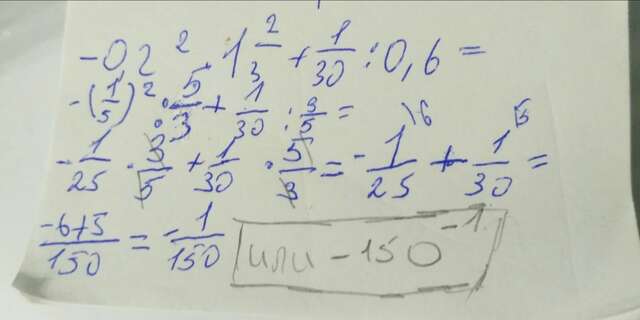 -02² · 1 2/3 + 1/30 : 0,6 =
-(1/5)² : 5/3 + 1/30 : 3/5 =
-1/25 · 3/5 + 1/30 · 5/3 = -1\6/25 + 1\5/30 =
-6+5/150 = -1/150 или -150⁻¹